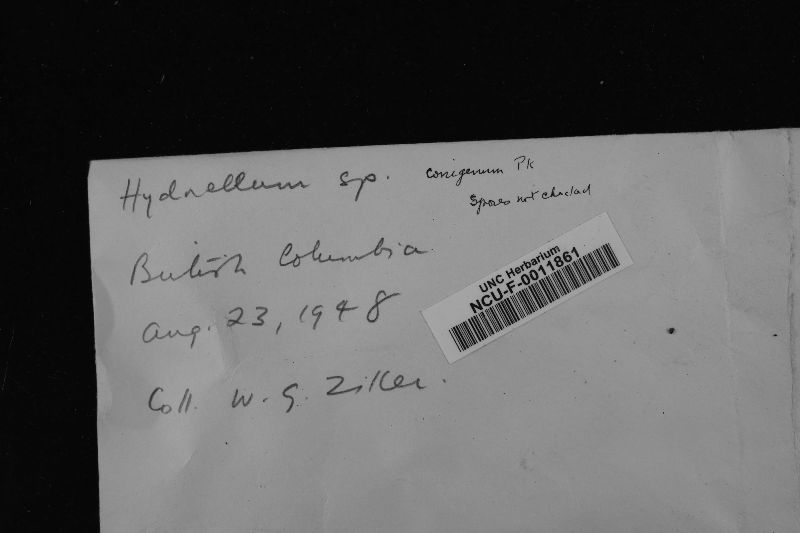 Hydnellum sp. conigenum Pk
Spores not checked
British Columbia
Aug. 23, 1948
Coll. W. G. Ziller.
UNC Herbarium
NCU-F-0011861